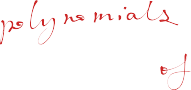 polynomials
of